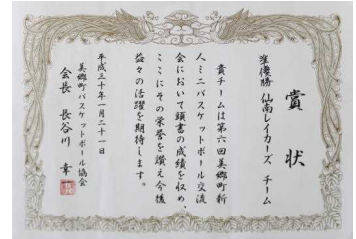 賞状
準優勝 仙南レイカーズ チーム
貴チームは第六回美郷町新
人ミニバスケットボール交流
会において頭書の成績を収め、
ここにその栄誉を讃え今後
益々の活躍を期待します。
平成三十年一月二十一日
美郷町バスケットボール協会
会長 長谷川 幸一